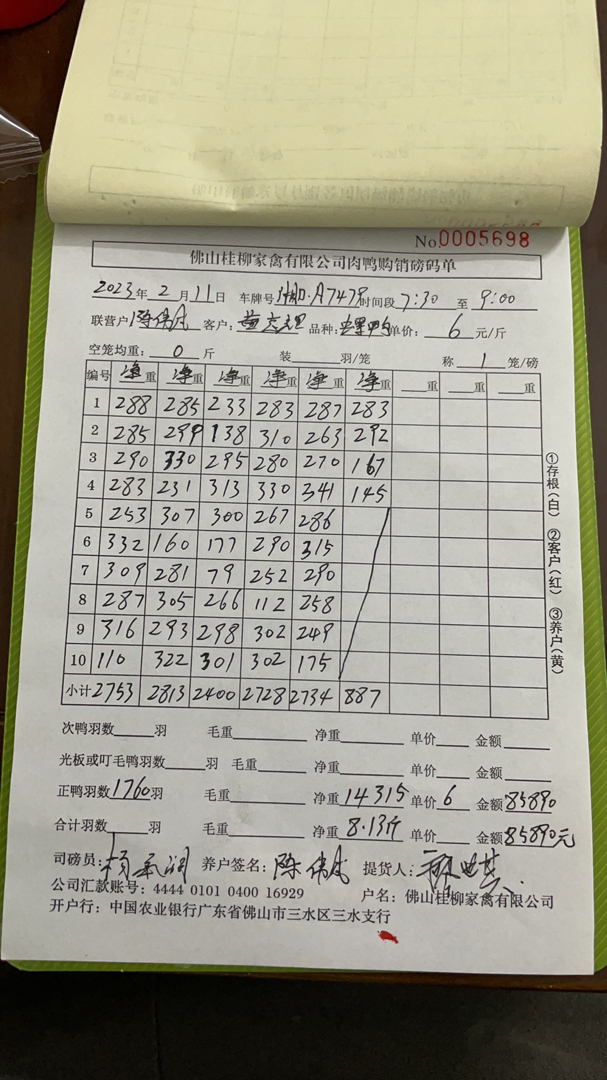 No0005698
佛山桂柳家禽有限公司肉鸭购销磅码单
2023年 2 月 11 日 车牌号 A7479 时间段 7:30 至 9:00
联营户 陈伟成 客户: 品种: 单价: 6 元/斤
空笼均重: 0 斤 装 羽/笼 称 1 笼/磅
编号 净重 净重 净重 净重 净重 净重 重 重 重
1 288 285 233 283 287 283
2 285 299 138 310 263 292
3 290 330 295 280 270 167
4 283 231 313 330 341 145
5 253 307 300 267 286
6 332 160 177 290 315
7 309 281 79 252 290
8 287 305 266 112 258
9 316 293 298 302 249
10 110 322 301 302 175
小计 2753 2813 2400 2728 2734 887
①存根(白) ②客户(红) ③养户(黄)
次鸭羽数 羽 毛重 净重 单价 金额
光板或叮毛鸭羽数 羽 毛重 净重 单价 金额
正鸭羽数 1760 羽 毛重 净重 14315 单价 6 金额 85890
合计羽数 羽 毛重 净重 8.13斤 单价 金额 85890元
司磅员: 养户签名: 陈伟成 提货人:
公司汇款账号: 4444 0101 0400 16929 户名: 佛山桂柳家禽有限公司
开户行: 中国农业银行广东省佛山市三水区三水支行